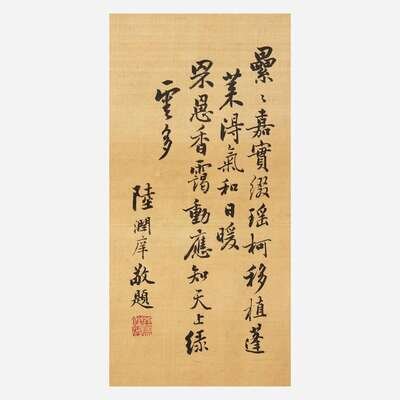 纍〻嘉實綴瑤柯移植蓬
萊得氣和日暖
罘罳香靄動應知天上綠
雲多
陸潤庠敬題